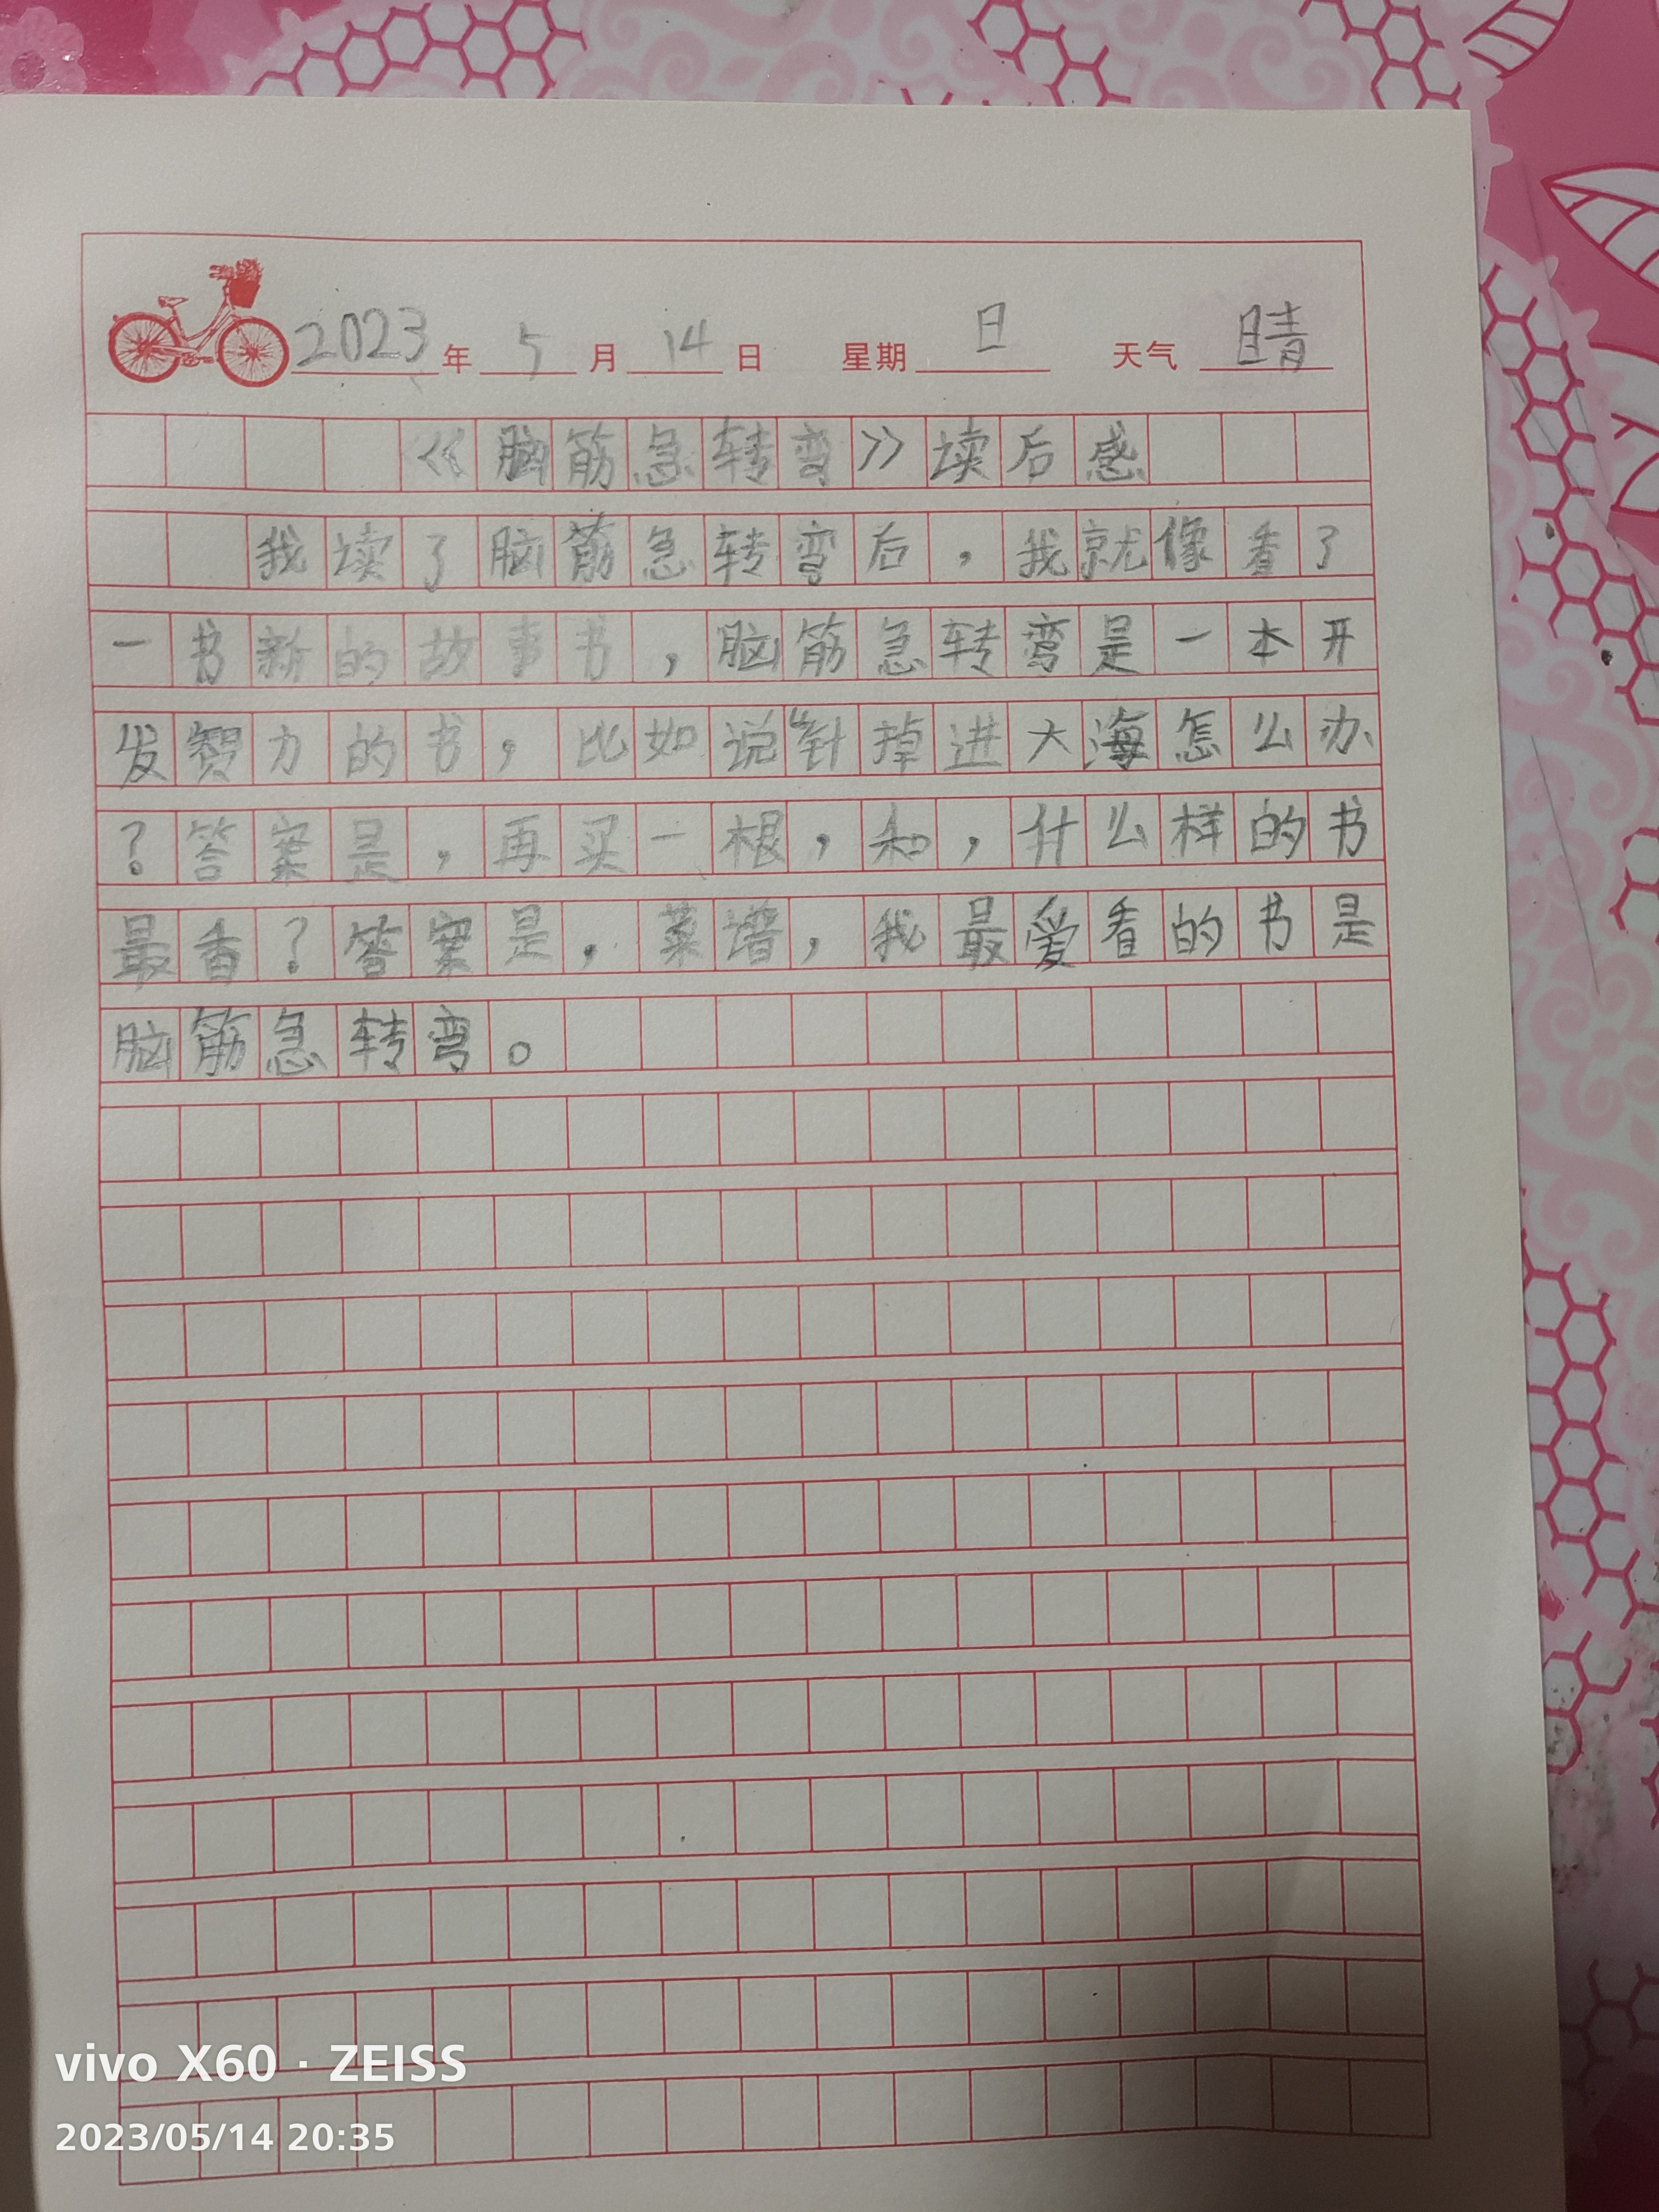 2023年5月14日 星期日 天气晴
《脑筋急转弯》读后感
我读了脑筋急转弯后，我就像看了
一书新的故事书，脑筋急转弯是一本开
发智力的书，比如说“针掉进大海怎么办
？答案是，再买一根，和，什么样的书
最香？答案是，菜谱，我最爱看的书是
脑筋急转弯。
vivo X60 · ZEISS
2023/05/14 20:35